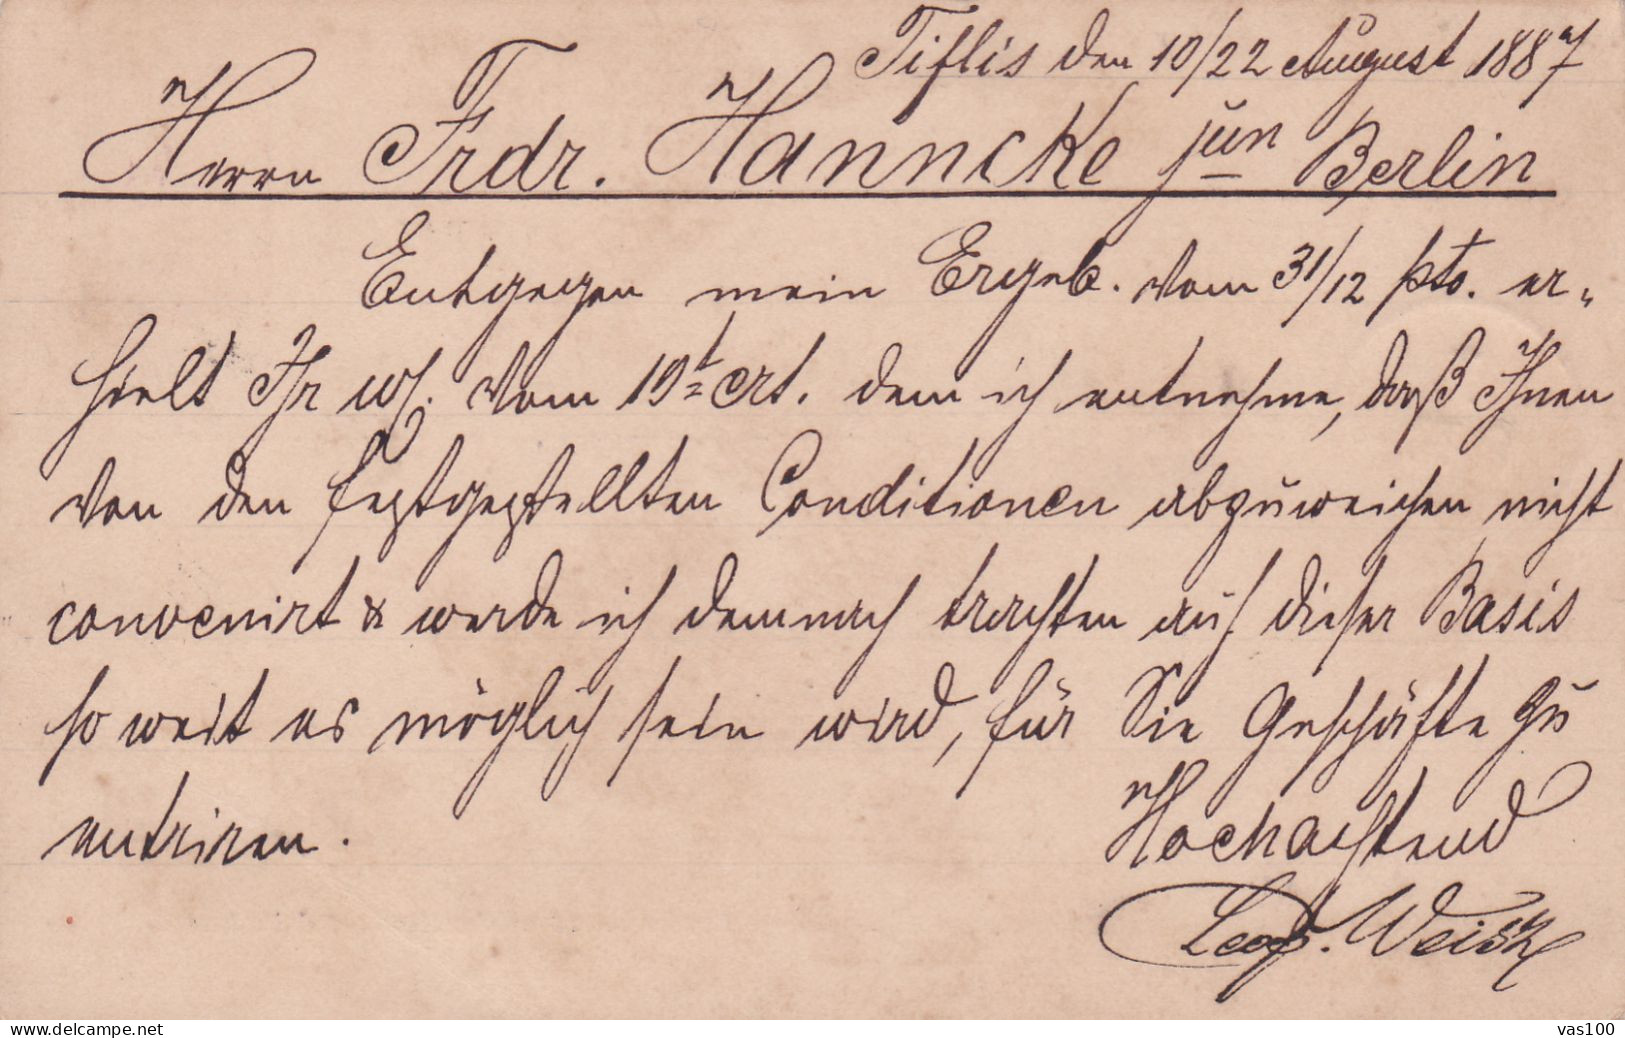 Tiflis den 10/22 August 1887
Herrn Frdr. Hanncke jun Berlin
Entgegen mein Ergeb. vom 31/12 pto. er-
hielt Ihr w. vom 19t crt. dem ich entnehme, daß Ihnen
von den festgestellten Conditionen abzuweichen nicht
convenirt & werde ich demnach trachten auf dieser Basis
so weit es möglich sein wird, für Sie Geschäfte zu
entriren.
Hochachtend
Leop. Weisz
www.delcampe.net
vas100